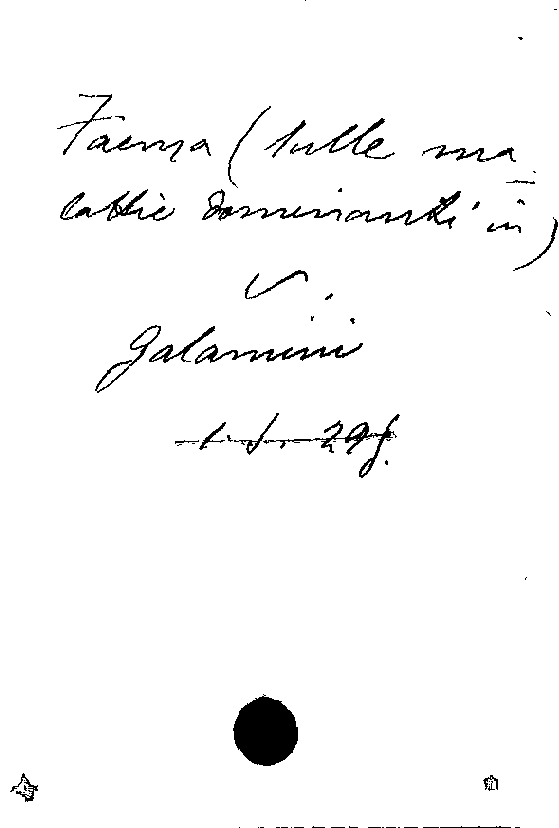 Faenza (sulle ma
lattie dominanti in)
V.
Galamini